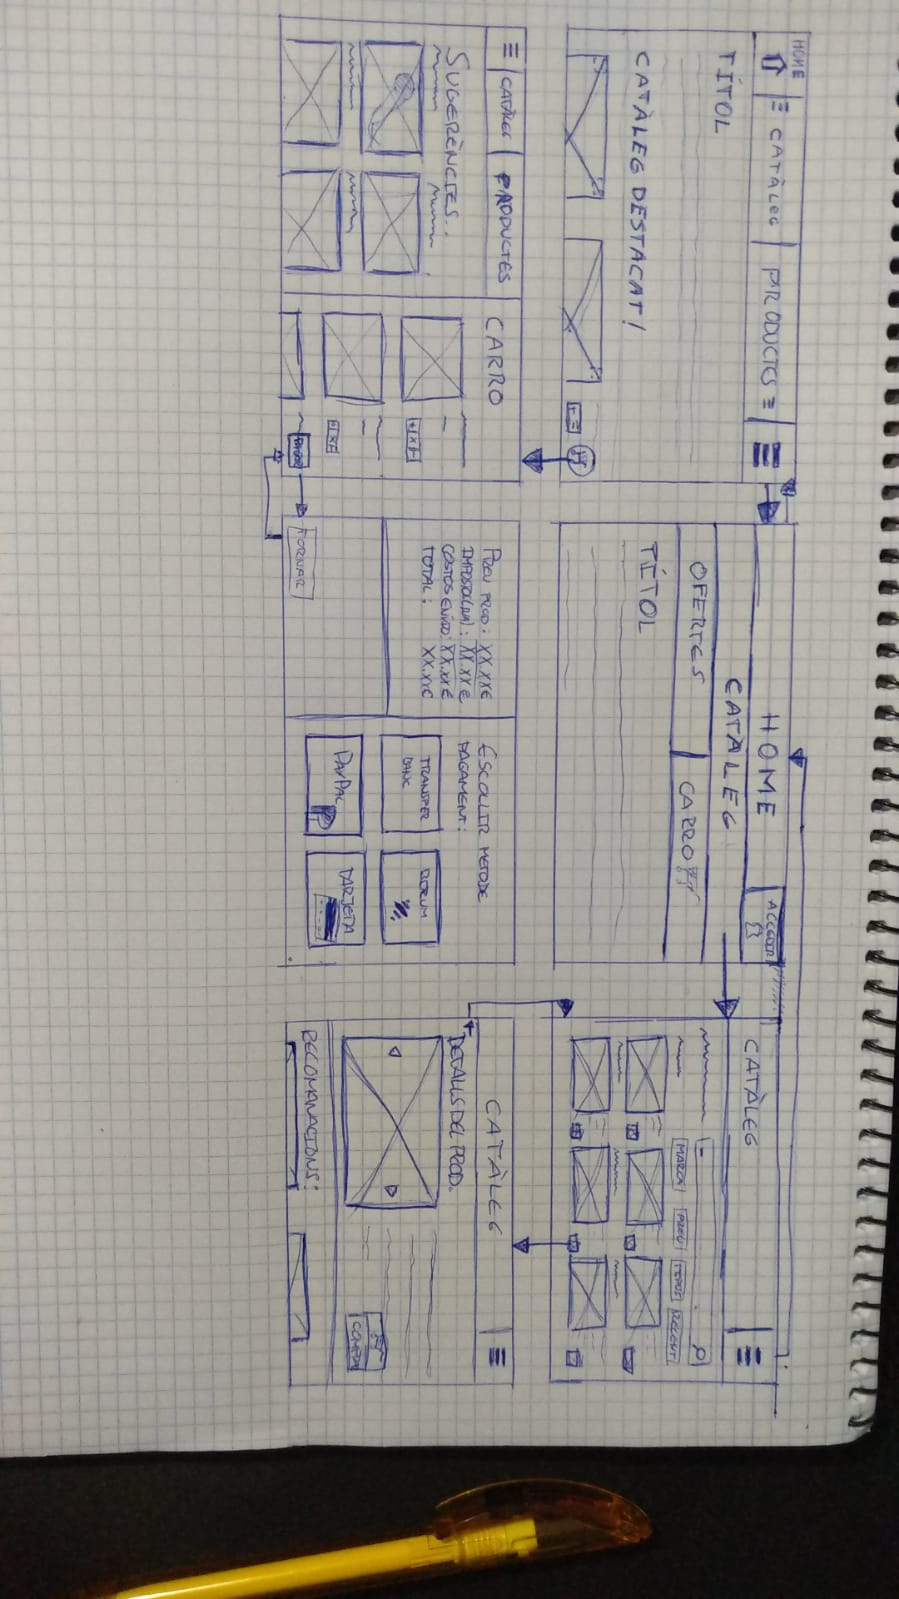 HOME
CATÀLEG PRODUCTES
TÍTOL
CATÀLEG DESTACAT!
HOME
ACCEDIR
CATÀLEG
OFERTES CARRO
TÍTOL
CATÀLEG
MARCA PREU TIPUS RECENT
CATÀLEG PRODUCTES
SUGERÈNCIES..
CARRO
PAGAR
PREU PROD: XX.XX€
XX.XX€
COSTOS ENVIO: XX.XX€
TOTAL: XX.XX€
TORNAR
ESCOLLIR METODE
PAGAMENT:
TRANSFER
BANC
BIZUM
PAYPAL
TARJETA
CATÀLEG
DETALLS DEL PROD.
COMPRA
RECOMANACIONS: